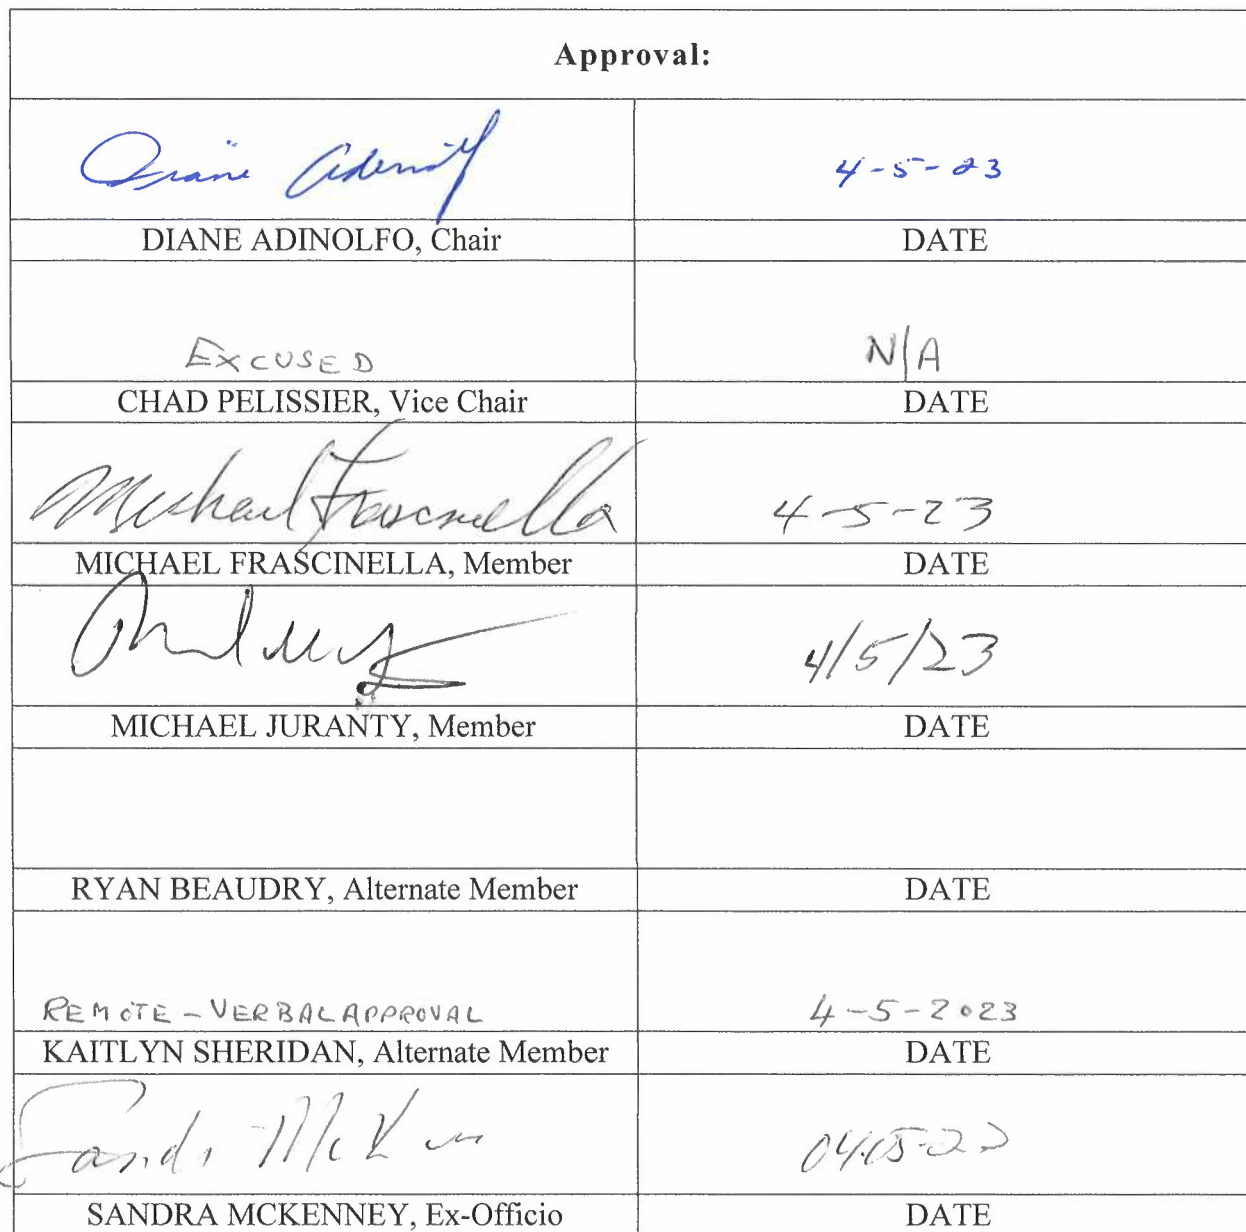 Approval:
Diane Adinolf 4-5-23
DIANE ADINOLFO, Chair DATE
EXCUSED N/A
CHAD PELISSIER, Vice Chair DATE
Michael Frascinella 4-5-23
MICHAEL FRASCINELLA, Member DATE
4/5/23
MICHAEL JURANTY, Member DATE
RYAN BEAUDRY, Alternate Member DATE
REMOTE - VERBAL APPROVAL 4-5-2023
KAITLYN SHERIDAN, Alternate Member DATE
SANDRA MCKENNEY, Ex-Officio DATE